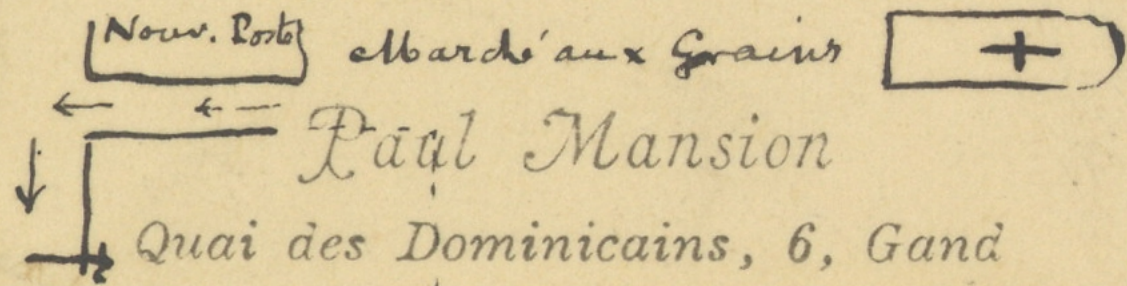 Nouv. Poste Marché aux Grains
Paul Mansion
Quai des Dominicains, 6, Gand